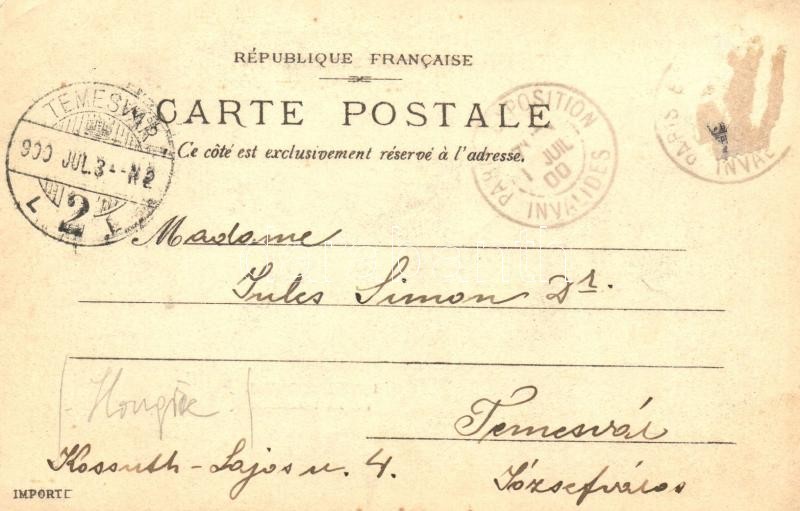 RÉPUBLIQUE FRANÇAISE
CARTE POSTALE
Ce côté est exclusivement réservé à l'adresse.
TEMESVÁR
900 JUL. 3 N2
2
PARIS EXPOSITION
1 JUIL 00
INVALIDES
PARIS E
INVAL
Madame
Jules Simon Dr.
(Hongrie)
Temesvár
Kossuth-Lajos u. 4.
Józsefváros
IMPORTÉ